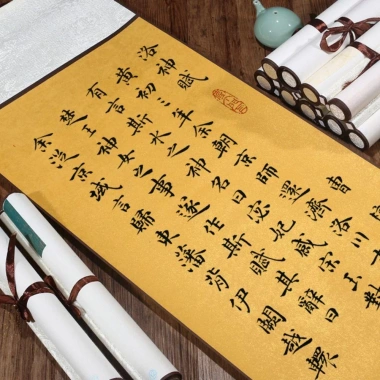 洛神賦 曹
黄初三年余朝京師還濟洛川
有言斯水之神名曰宓妃感宋玉對
楚王神女之事遂作斯賦其辭曰
余從京域言歸東藩背伊闕越轘